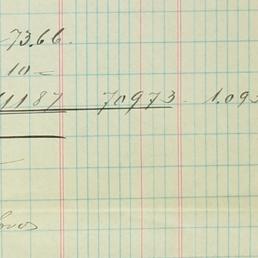 73.66.
10 –
1187 70973 1.093